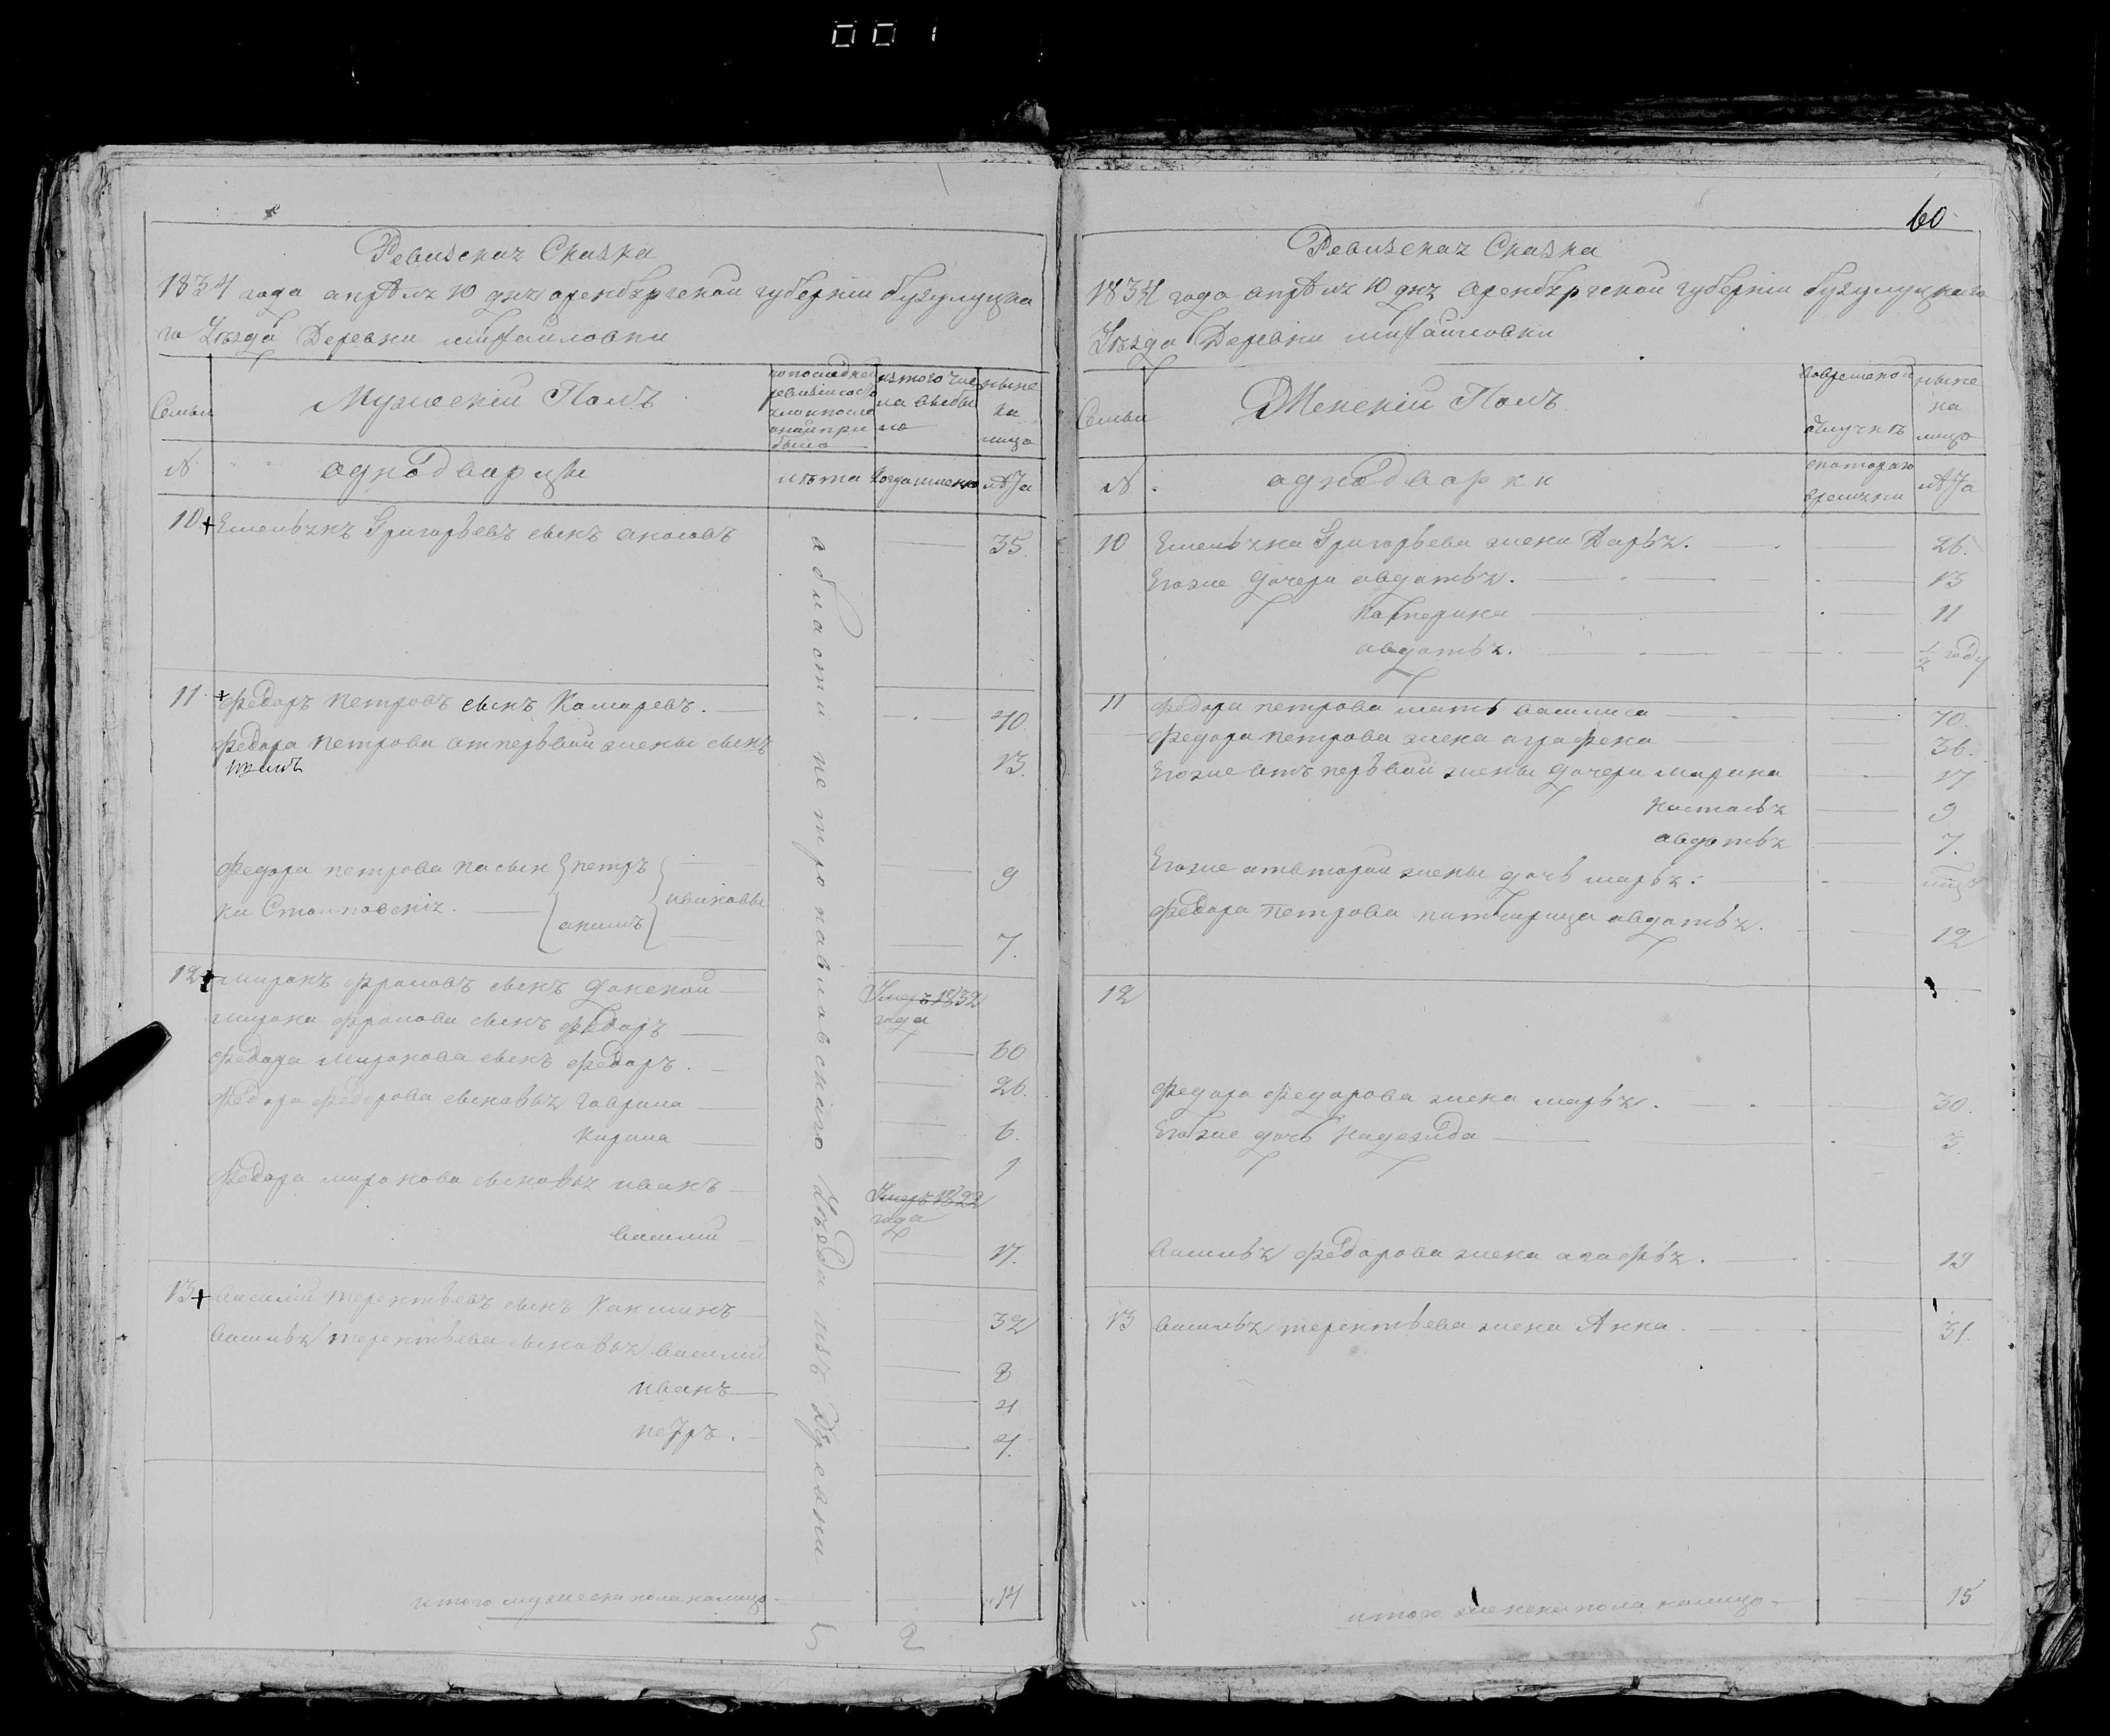 001
Ревизская Сказка
1834 года апреля 10 дня оренбургской губернии бузулуцка
го Уезда Деревни михайловки
Семьи
Мужеский Полъ
по последней ревизии состояло и после оной прибыло
из того числа выбыло
ныне на лицо
№
аднодварцы
лета
когда именно
лета
10 Емельянъ Григорьевъ сынъ 35.
11 Федоръ петровъ сынъ Камаревъ. 40
Федора петрова отпервой жены сынъ 13.
Федора петрова пасын петръ 9
ки
акимъ 7.
12 миронъ фроловъ сынъ данской Умеръ 1832
года
мирона фролова сынъ федоръ 60
Федора миронова сынъ федоръ. 26.
Федора федорова сыновья гаврила 6.
Кирила 1
Федора миронова сыновья иванъ Умеръ 1822
года
василий 17.
13 Василий терентьевъ сынъ Какшинъ 32
Василья терентьева сыновья василий 8
иванъ 4
петръ. 4.
области петропавловскаго Уезда изъ Деревни
итого мужеска пола налицо 14
2
60
Ревизская Сказка
1834 года апреля 10 дня оренбургской губернии бузулуцкаго
Уезда Деревни михайловки
Семьи
Женский Полъ
вовременной отлучке
ныне на лицо
№
аднодварки
скотораго времени
лета
10 Емельяна Григорьева жена Дарья. 26.
Егоже дочери авдотья. 13
Катерина 11
авдотья. 1/2 году
11 Федора петрова мать василиса 70.
Федора петрова жена аграфена 36.
Егоже отъ первой жены дочери марина 17
Насталья 9
авдотья 7.
Егоже отвторой жены дочь марья.
Федора петрова патчирица авдотья. 12
12
Федора Федорова жена марья. 30.
Егоже дочь надежида 3.
Василья федорова жена агафья. 19
13 Василья терентьева жена Анна. 31.
итого женска пола налицо 15